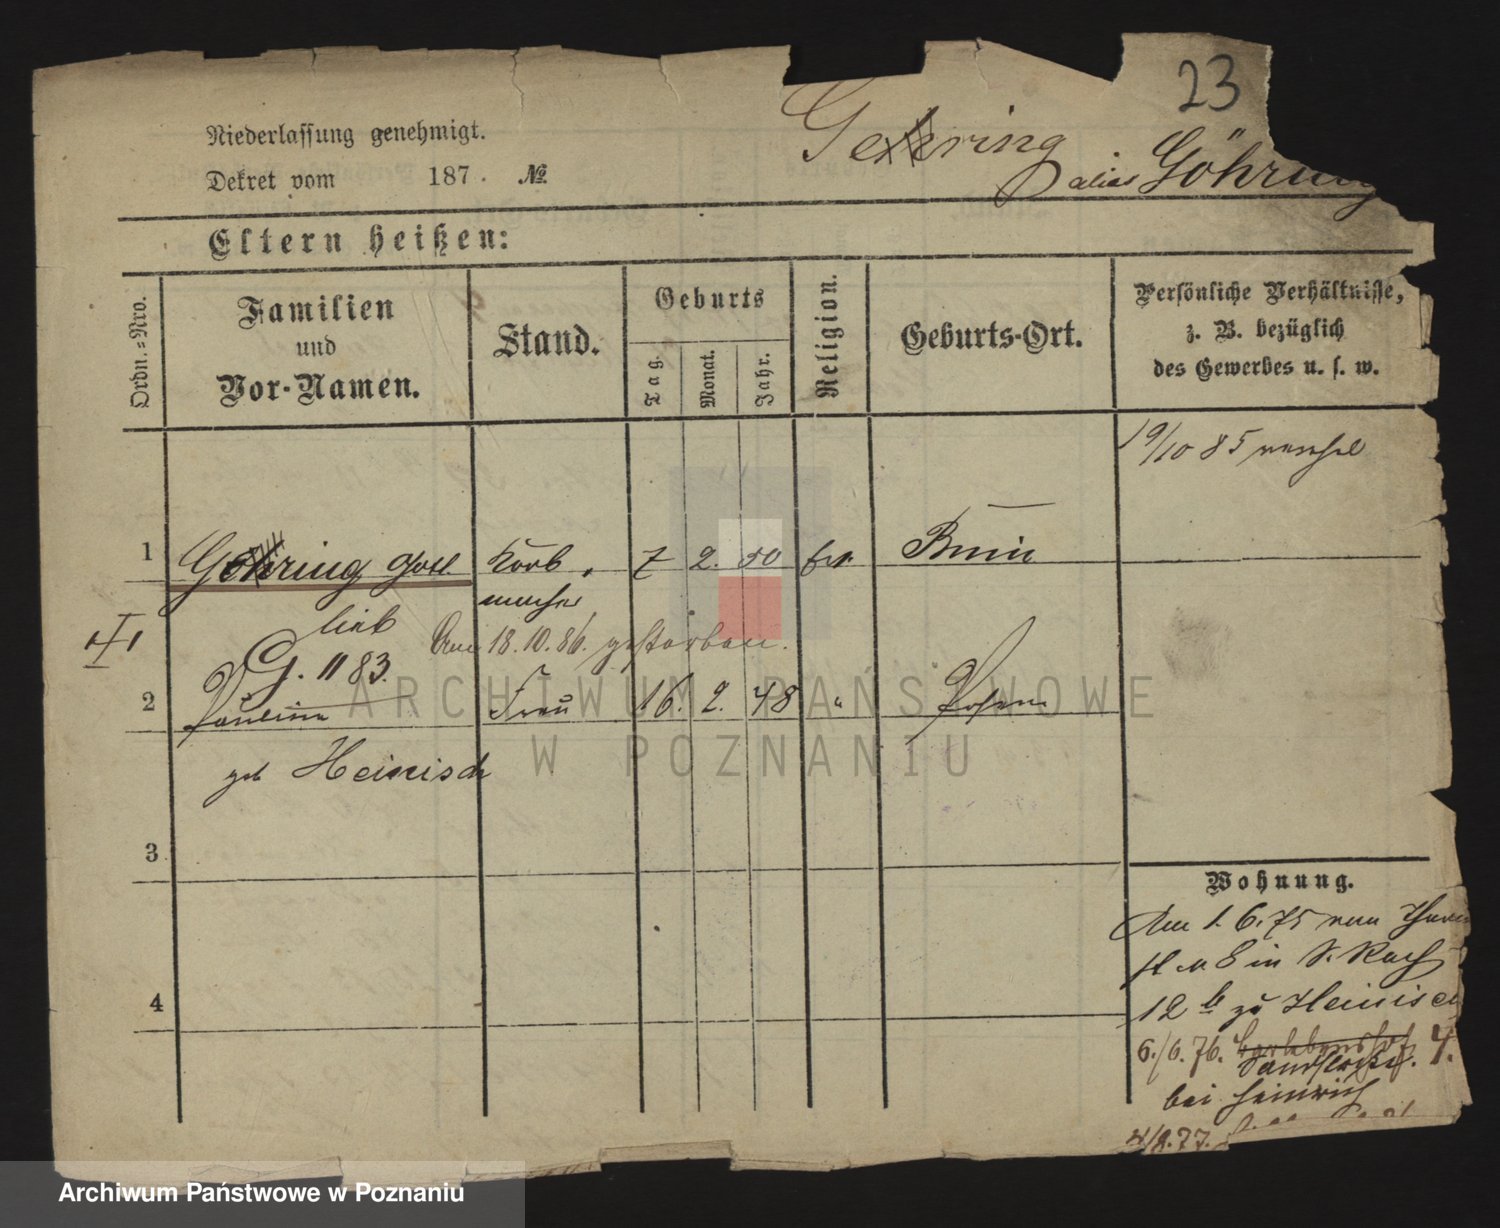 23
Niederlassung genehmigt.
Gehring
Dekret vom 187 . №
alias Göhring
Eltern heißen:
Ordn.=Nro.
Familien
und
Vor-Namen.
Stand.
Geburts
Tag.
Monat.
Jahr.
Religion.
Geburts-Ort.
Persönliche Verhältnisse,
z. B. bezüglich
des Gewerbes u. s. w.
19/10 85
1 Gehring Gott Korb, 7 2. 50 ev. Bnin
macher
lieb
Am 18.10.86. gestorben.
G. 11 83.
2 Pauline Frau 16. 2. 48 " Posen
geb Heinisch
3
4
Wohnung.
Am 1. 6. 75 von
in S.
12 b zu Heinisch
6./6. 76. 4.
bei Heinrich
4/8.77.
ARCHIWUM PAŃSTWOWE
W POZNANIU
Archiwum Państwowe w Poznaniu